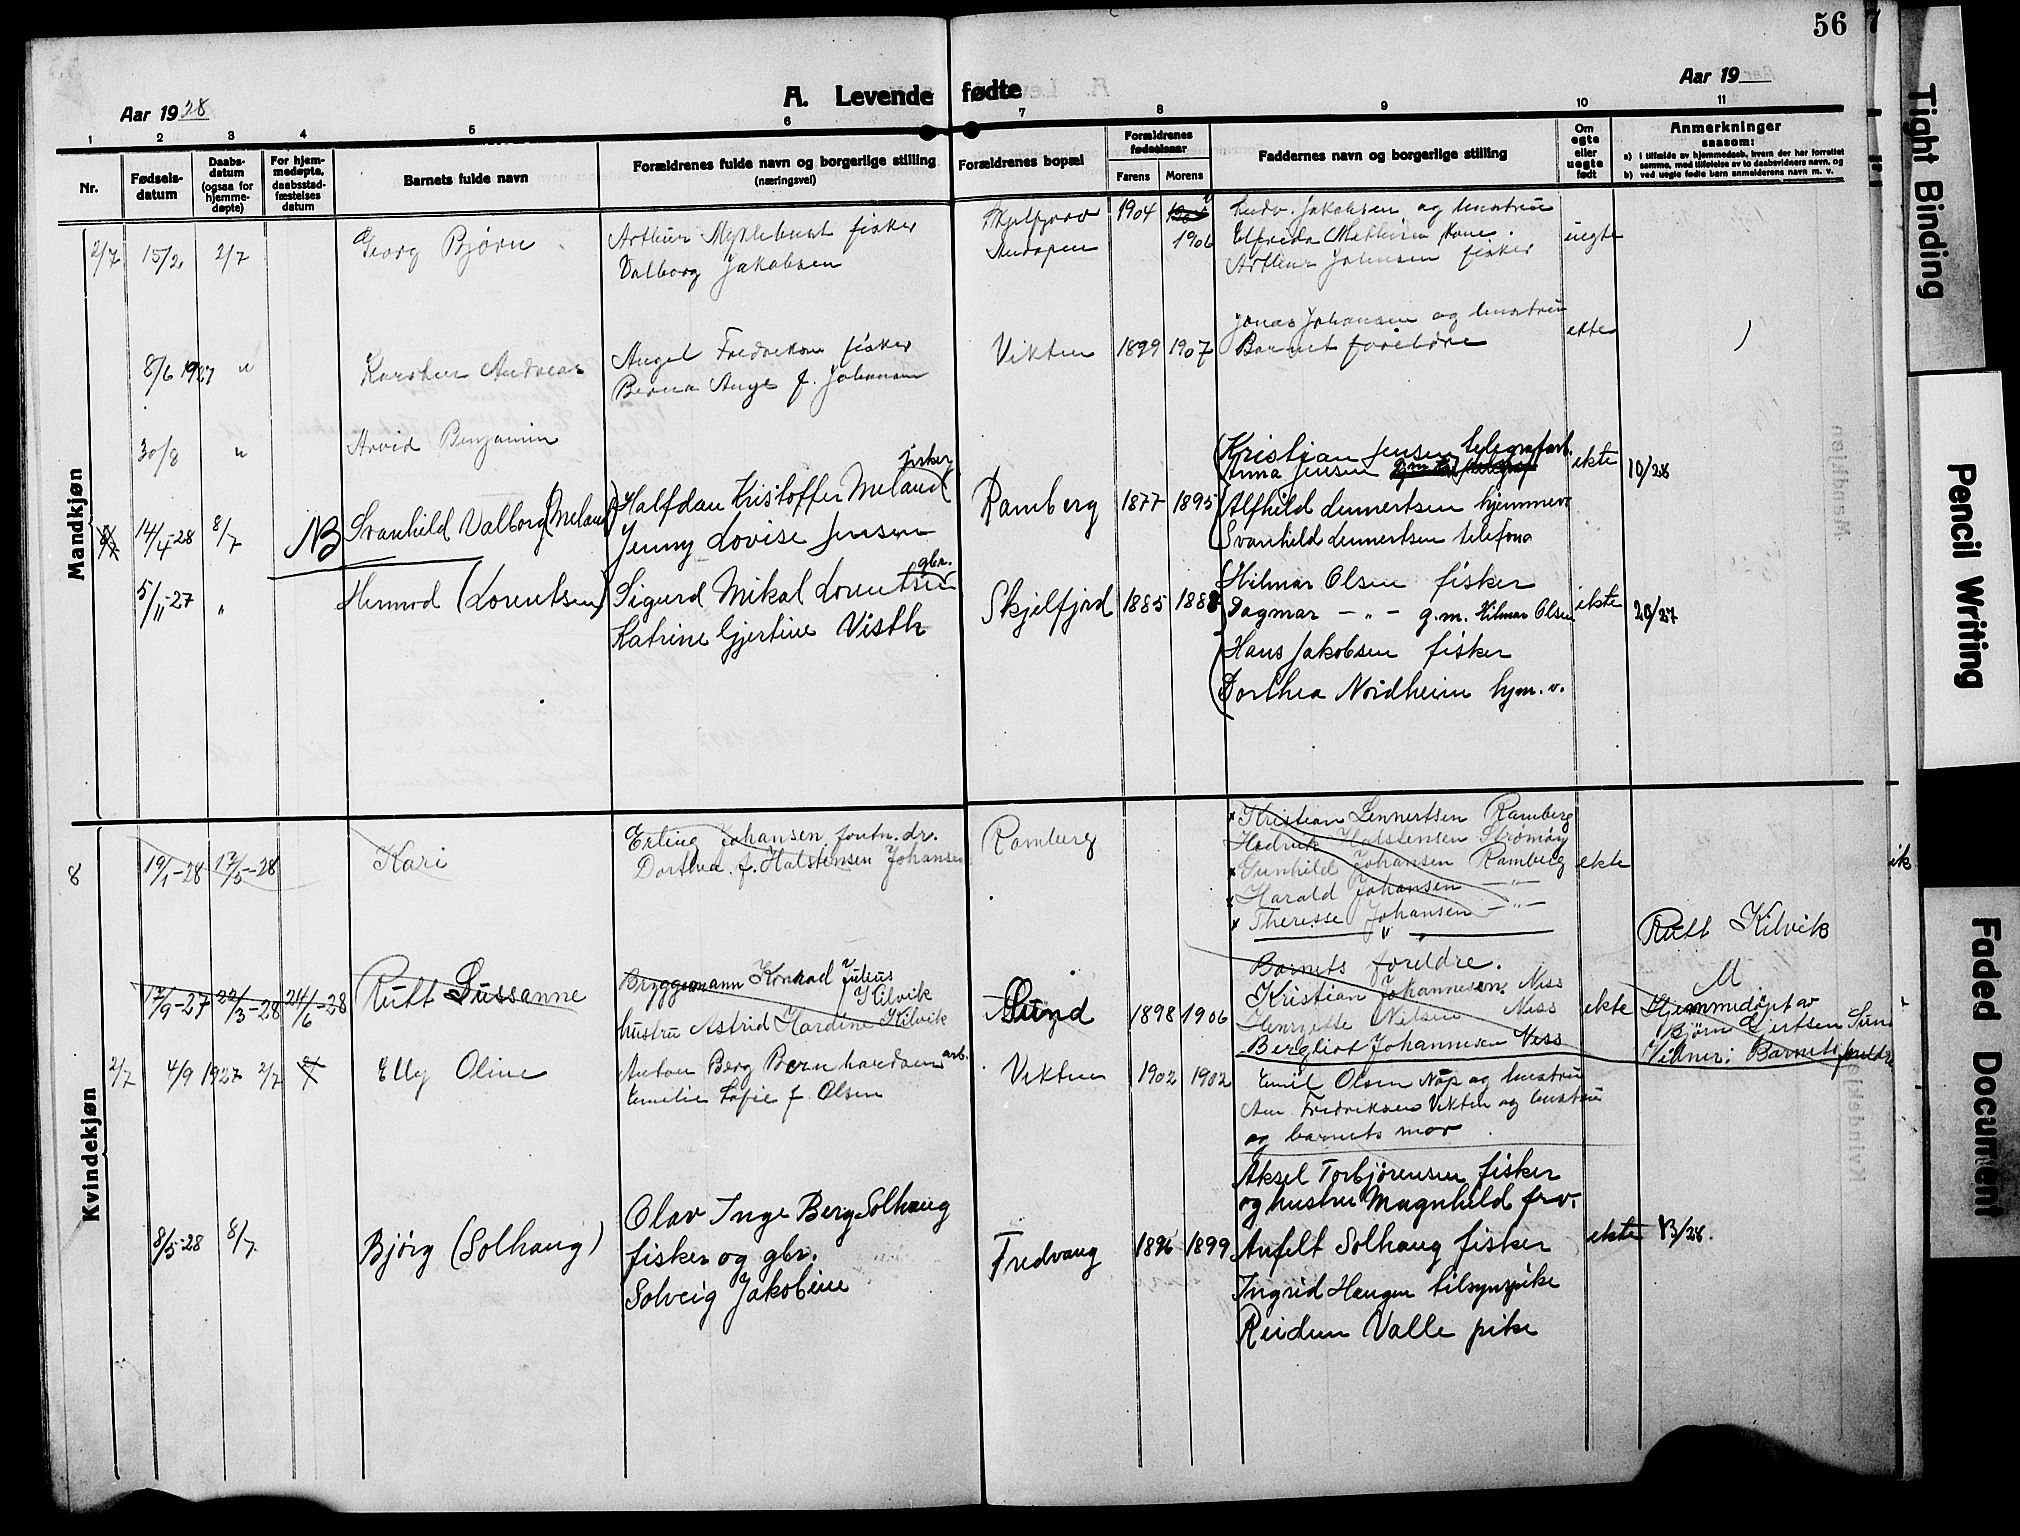 56
7
Aar 1928
A. Levende fødte
Aar 19
1 2 3 4 5 6 7 8 9 10 11
Nr.
Fødsels-
datum
Daabs-
datum
(ogsaa for
hjemme-
døpte)
For hjem-
medøpte,
daabsstad-
fæstelses
datum
Barnets fulde navn
Forældrenes fulde navn og borgerlige stilling
(næringsvei)
Forældrenes bopæl
Forældrenes
fødselsaar
Farens Morens
Faddernes navn og borgerlige stilling
Om
egte
eller
uegte
født
Anmerkninger
saasom:
a) i tilfælde av hjemmedaab, hvem der har forrettet
samme, med tilføielse av to daabsvidners navn, og
b) ved uegte fødte børn anmelderens navn m. v.
Mandkjøn
2/7 15/2 2/7
Georg Bjørn
Arthur Myklebust fisker
Valborg Jakobsen
1904
1906
Ludv. Jakobsen og hustru
Elfrida Mathisen kone
Arthur Johnsen fisker
uegte
8/6 1927 "
Karsten Andreas
Angel Fredriksen fisker
Berna Ange f. Johansen
Vikten 1899 1907
Jonas Johansen og hustru
Barnets foreldre
ekte
30/8 "
Arvid Benjamin
14/4-28 8/7
NB
Svanhild Valborg (Meland)
fisker
Halfdan Kristoffer Meland
Jenny Lovise Jensen
Ramberg 1877 1895
Kristian Jensen telegrafarb.
Anna Jensen
Alfhild Lennertsen hjemmev
Svanhild Lennertsen telefona
ekte
10/28
5/11-27 "
Hermod (Lorentsen)
gbr.
Sigurd Mikal Lorentsen
Katrine Gjertine Visth
Skjelfjord 1885 1888
Hilmar Olsen fisker
Dagmar - " - g.m. Hilmar Olsen
Hans Jakobsen fisker
Dorthea Nordheim hjm. v.
ekte
20/27
Kvindekjøn
8 19/1-28 17/5-28
Kari
Erling Johansen, fortn. dr.
Dorthea f. Halstensen Johansen
Ramberg
Kristian Lennertsen Ramberg
Hedvik Halstensen Strömöy
Gunhild Johansen Ramberg
Harald Johansen - " -
Theresse Johansen - " -
ekte
17/9-27 22/3-28 24/6-28
Rutt Sussanne
Bryggemann Konrad Julius
Kilvik
hustru Astrid Hardine Kilvik
Sund 1898 1906
Barnets foreldre.
Kristian Johannesen Ness
Henrzette Nilsen Ness
Bergliot Johannesen Ness
ekte
Rutt Kilvik
Hjemmedöpt av
Björn Gjertsen Sund
Vidner: Barnets foreldre
2/7 4/9 1927 2/7
Elly Oline
Anton Berg Bernhardsen arb.
Emilie Sofie f. Olsen
Vikten 1902 1902
Emil Olsen Nap og hustru
Am. Fredriksen Vikten og hustru
og barnets mor
8/5-28 8/7
Bjørg (Solhaug)
Olav Inge Berg Solhaug
fisker og gbr.
Solveig Jakobine
Fredvang 1896 1899
Aksel Torbjörensen fisker
og hustru Magnhild frv.
Anfelt Solhaug fisker
Ingrid Haugen tilsynspike
Reidun Valle pike
ekte 13/28.
Tight Binding
Pencil Writing
Faded Document